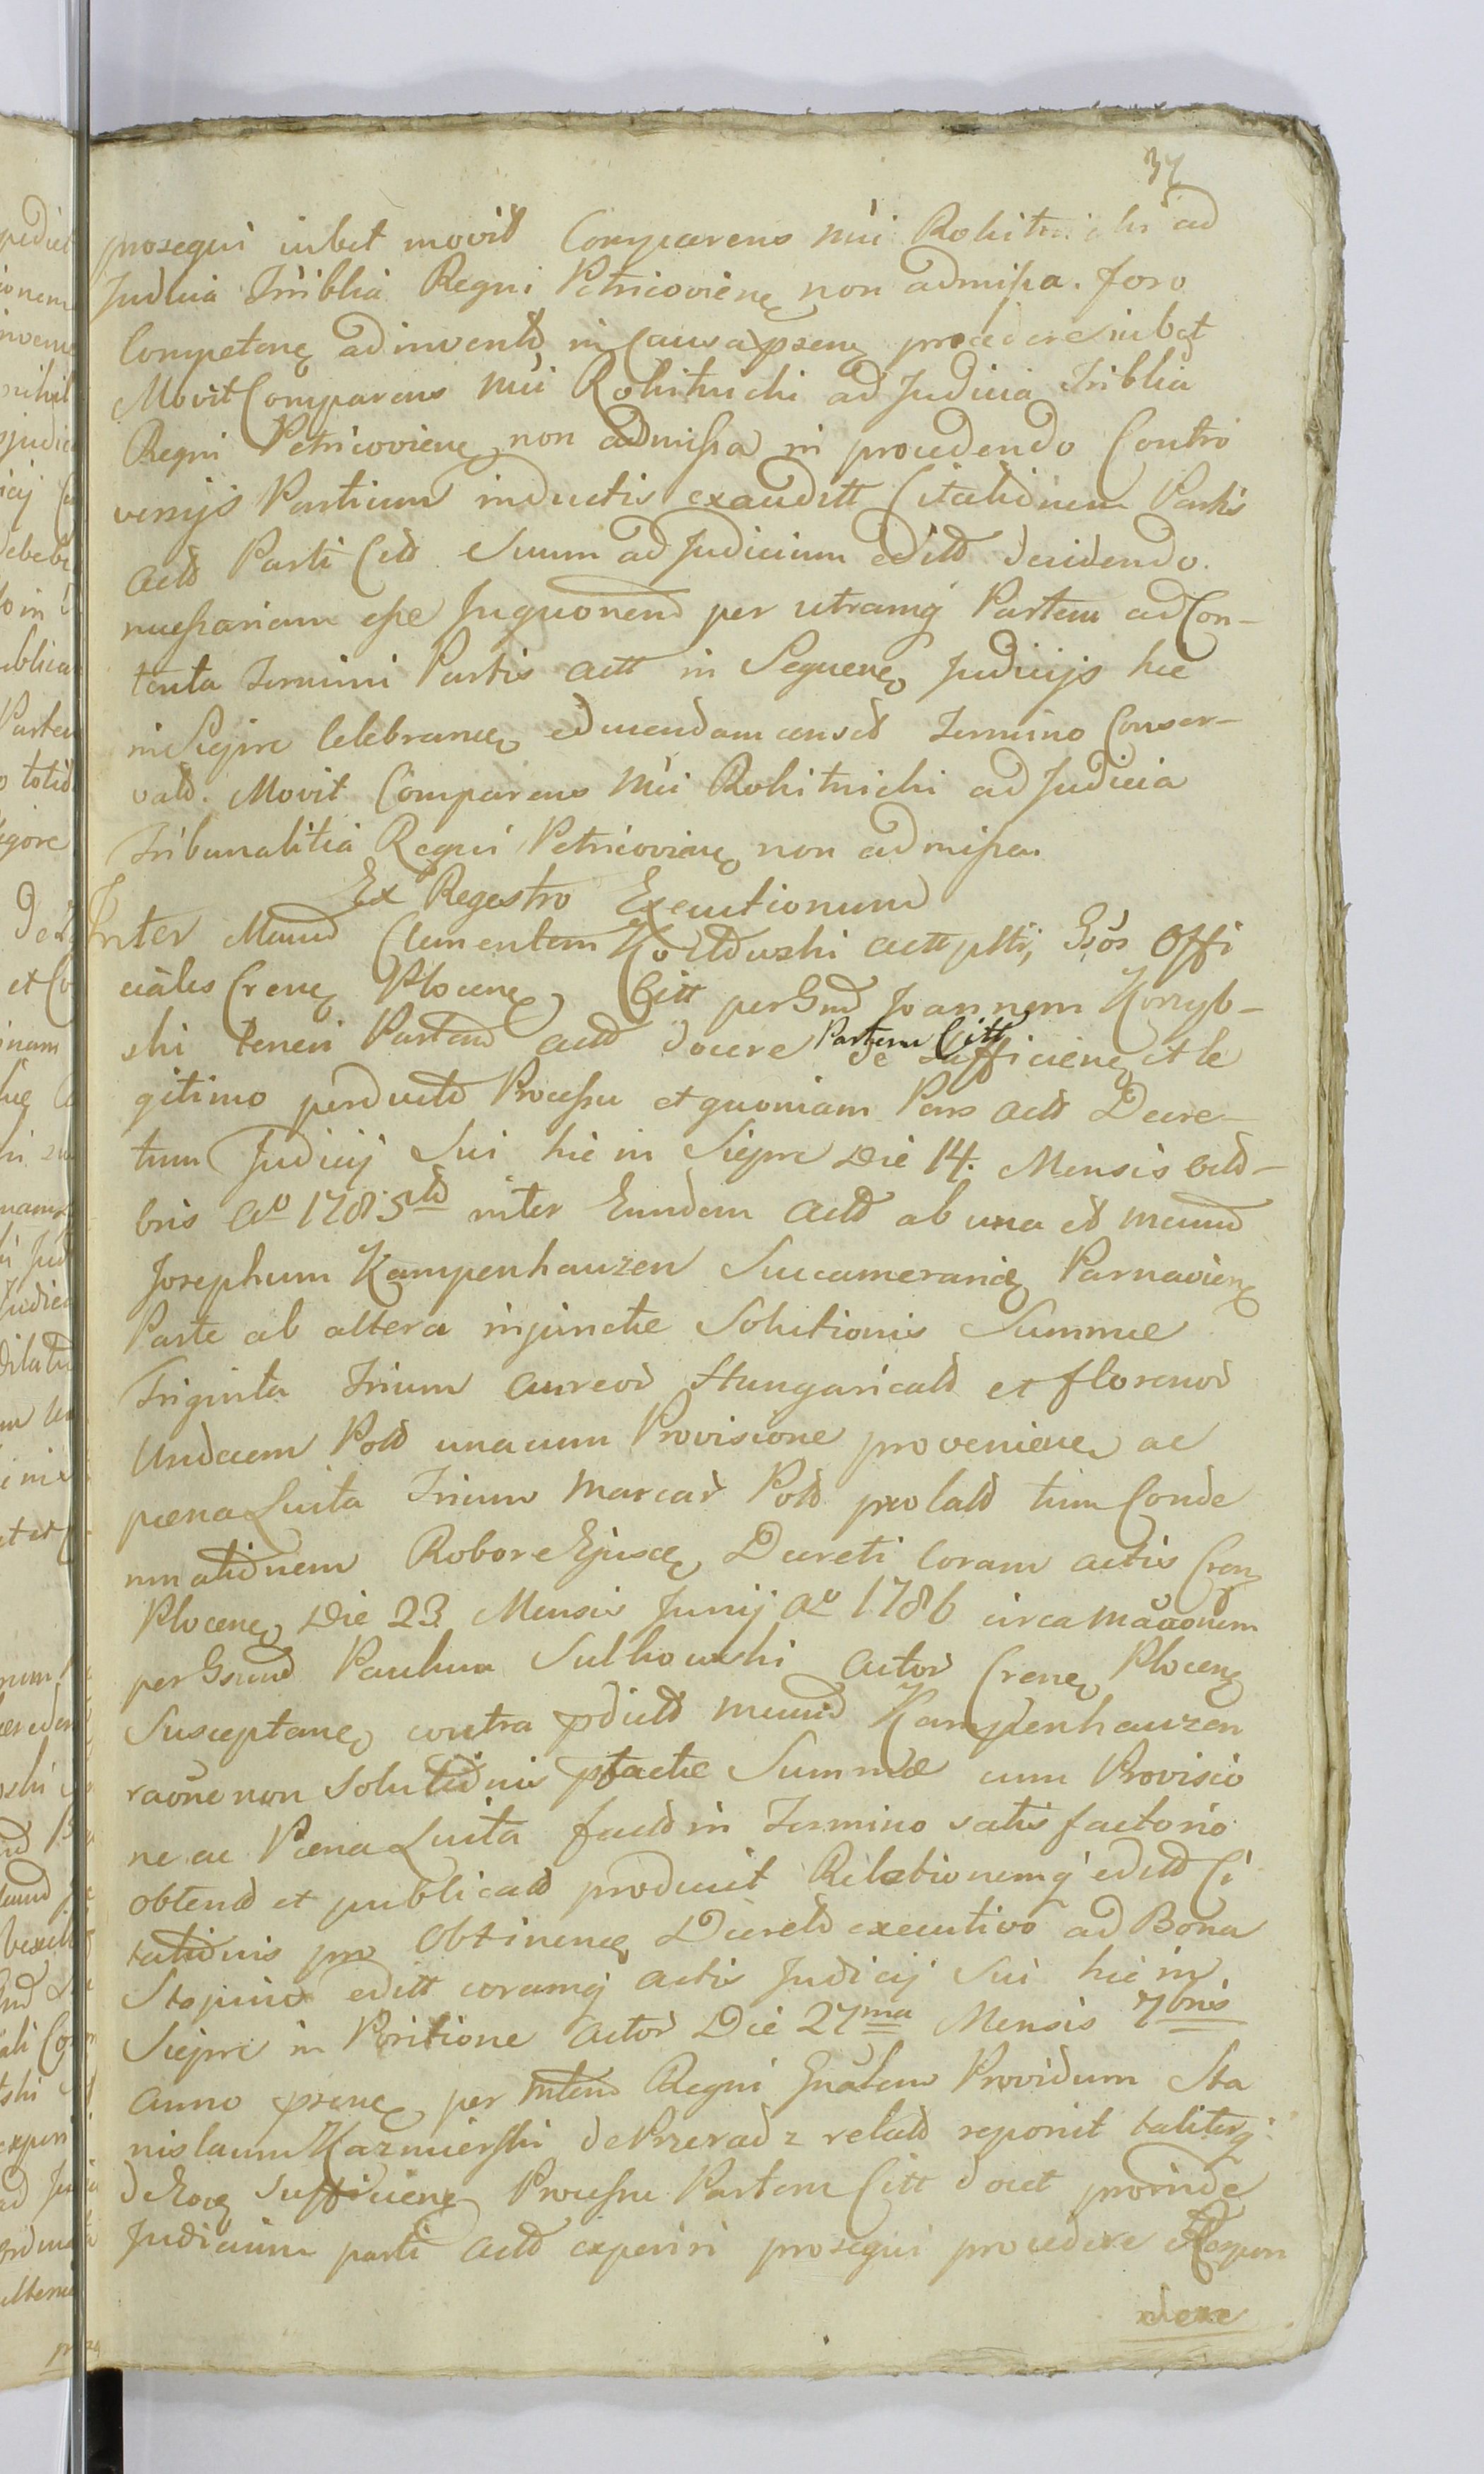 37
prosequi iubet movit Comparens Mci Rokitnicki ad
Judicia Triblia Regni Petricovien non admissa. Foro
Competen adinvento in Causa pnsen procedere iubet
Movit Comparens Mci Rokitnicki ad Judicia Triblia
Regni Petricovien non admissa in procedendo Contro
versijs Partium inductis exauditt Citationem Partis
Act Parti Citt Suum ad Judicium edit decidendo
necessariam esse Juquonend per utramq Partem ad Con-
tenta Termini Partis actt in Sequen Judicijs hic
in Sierpc Celebran edducendam censet Termino Conser-
vato. Movit Comparens Mci Rokitnicki ad Judicia
Tribunalitia Regni Petricovien non admissa.
Ex Regestro Executionum
Inter Mcum Clementem actt pltt, Gsos Offi
ciales Cren Plocen, Citt per Gsum Joannem Korzyb-
ski teneri Partem act docere Partem Citt de sufficien et le
gitimo perducto Processu et quoniam Pars act Decre-
tum Judicij Sui hic in Sierpc Die 14. Mensis octo-
bris Ao 1785to inter Eundem act ab una et Mcum
Josephum Kampenhauzen Succamerarid Parnavien
Parte ab altera injunctae Solutionis Summae
Triginta Trium aureor Hungaricali et florenor
Undecem Pold unacum Provisione provenien ac
paena Luita Trium Marcar Pold prolat tum Conde
mnationem Robore Ejusd Decreti Coram actis Cren
Plocen Die 23 Mensis Junij Ao 1786 circa
per Gsum Paulum Sulkowski actor Cren Plocen
Susceptan contra pdict Mcum Kampenhauzen
raone non Solutionis pfactae Summae cum Provisio
ne ac Paena Luita fact in Termino satisfactorio
obtent et publicat producit Relationemq edit Ci
tationis pro Obtinen Decreto executivo ad Bona
Stopino editt coramq actis Judicij Sui hic in
Sierpc in Poritione actor Die 27ma Mensis 7bris
anno pnsen per Mtem Regni Gnalem Providum Sta
nislaum Kazmierski de Przeradz relat reponit taliterq
de eoq sufficien Processu Partem Citt docet proinde
Judicium parti act experiri prosequi procedere Respon
dere